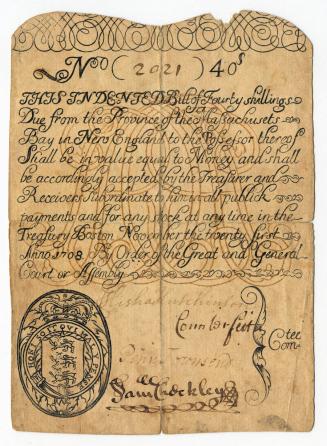 Noo (2021) 40s
THIS INDENTED Bill of Fourty shillings
Due from the Province of the Massachusets
Bay in New England to the Possessor thereof
Shall be in value equal to Money and shall
be accordingly accepted by the Treasurer and
Receivers Subordinate to him in all publick
payments and for any Stock at any time in the
Treasury Boston November the twenty first
Anno 1708. By Order of the Great and General
Court or Assembly
Elisha Hutchinson
Counterfeit
Penn Townsend
Comtee
Sam Checkley
HONI SOIT QUI MAL Y PENSE